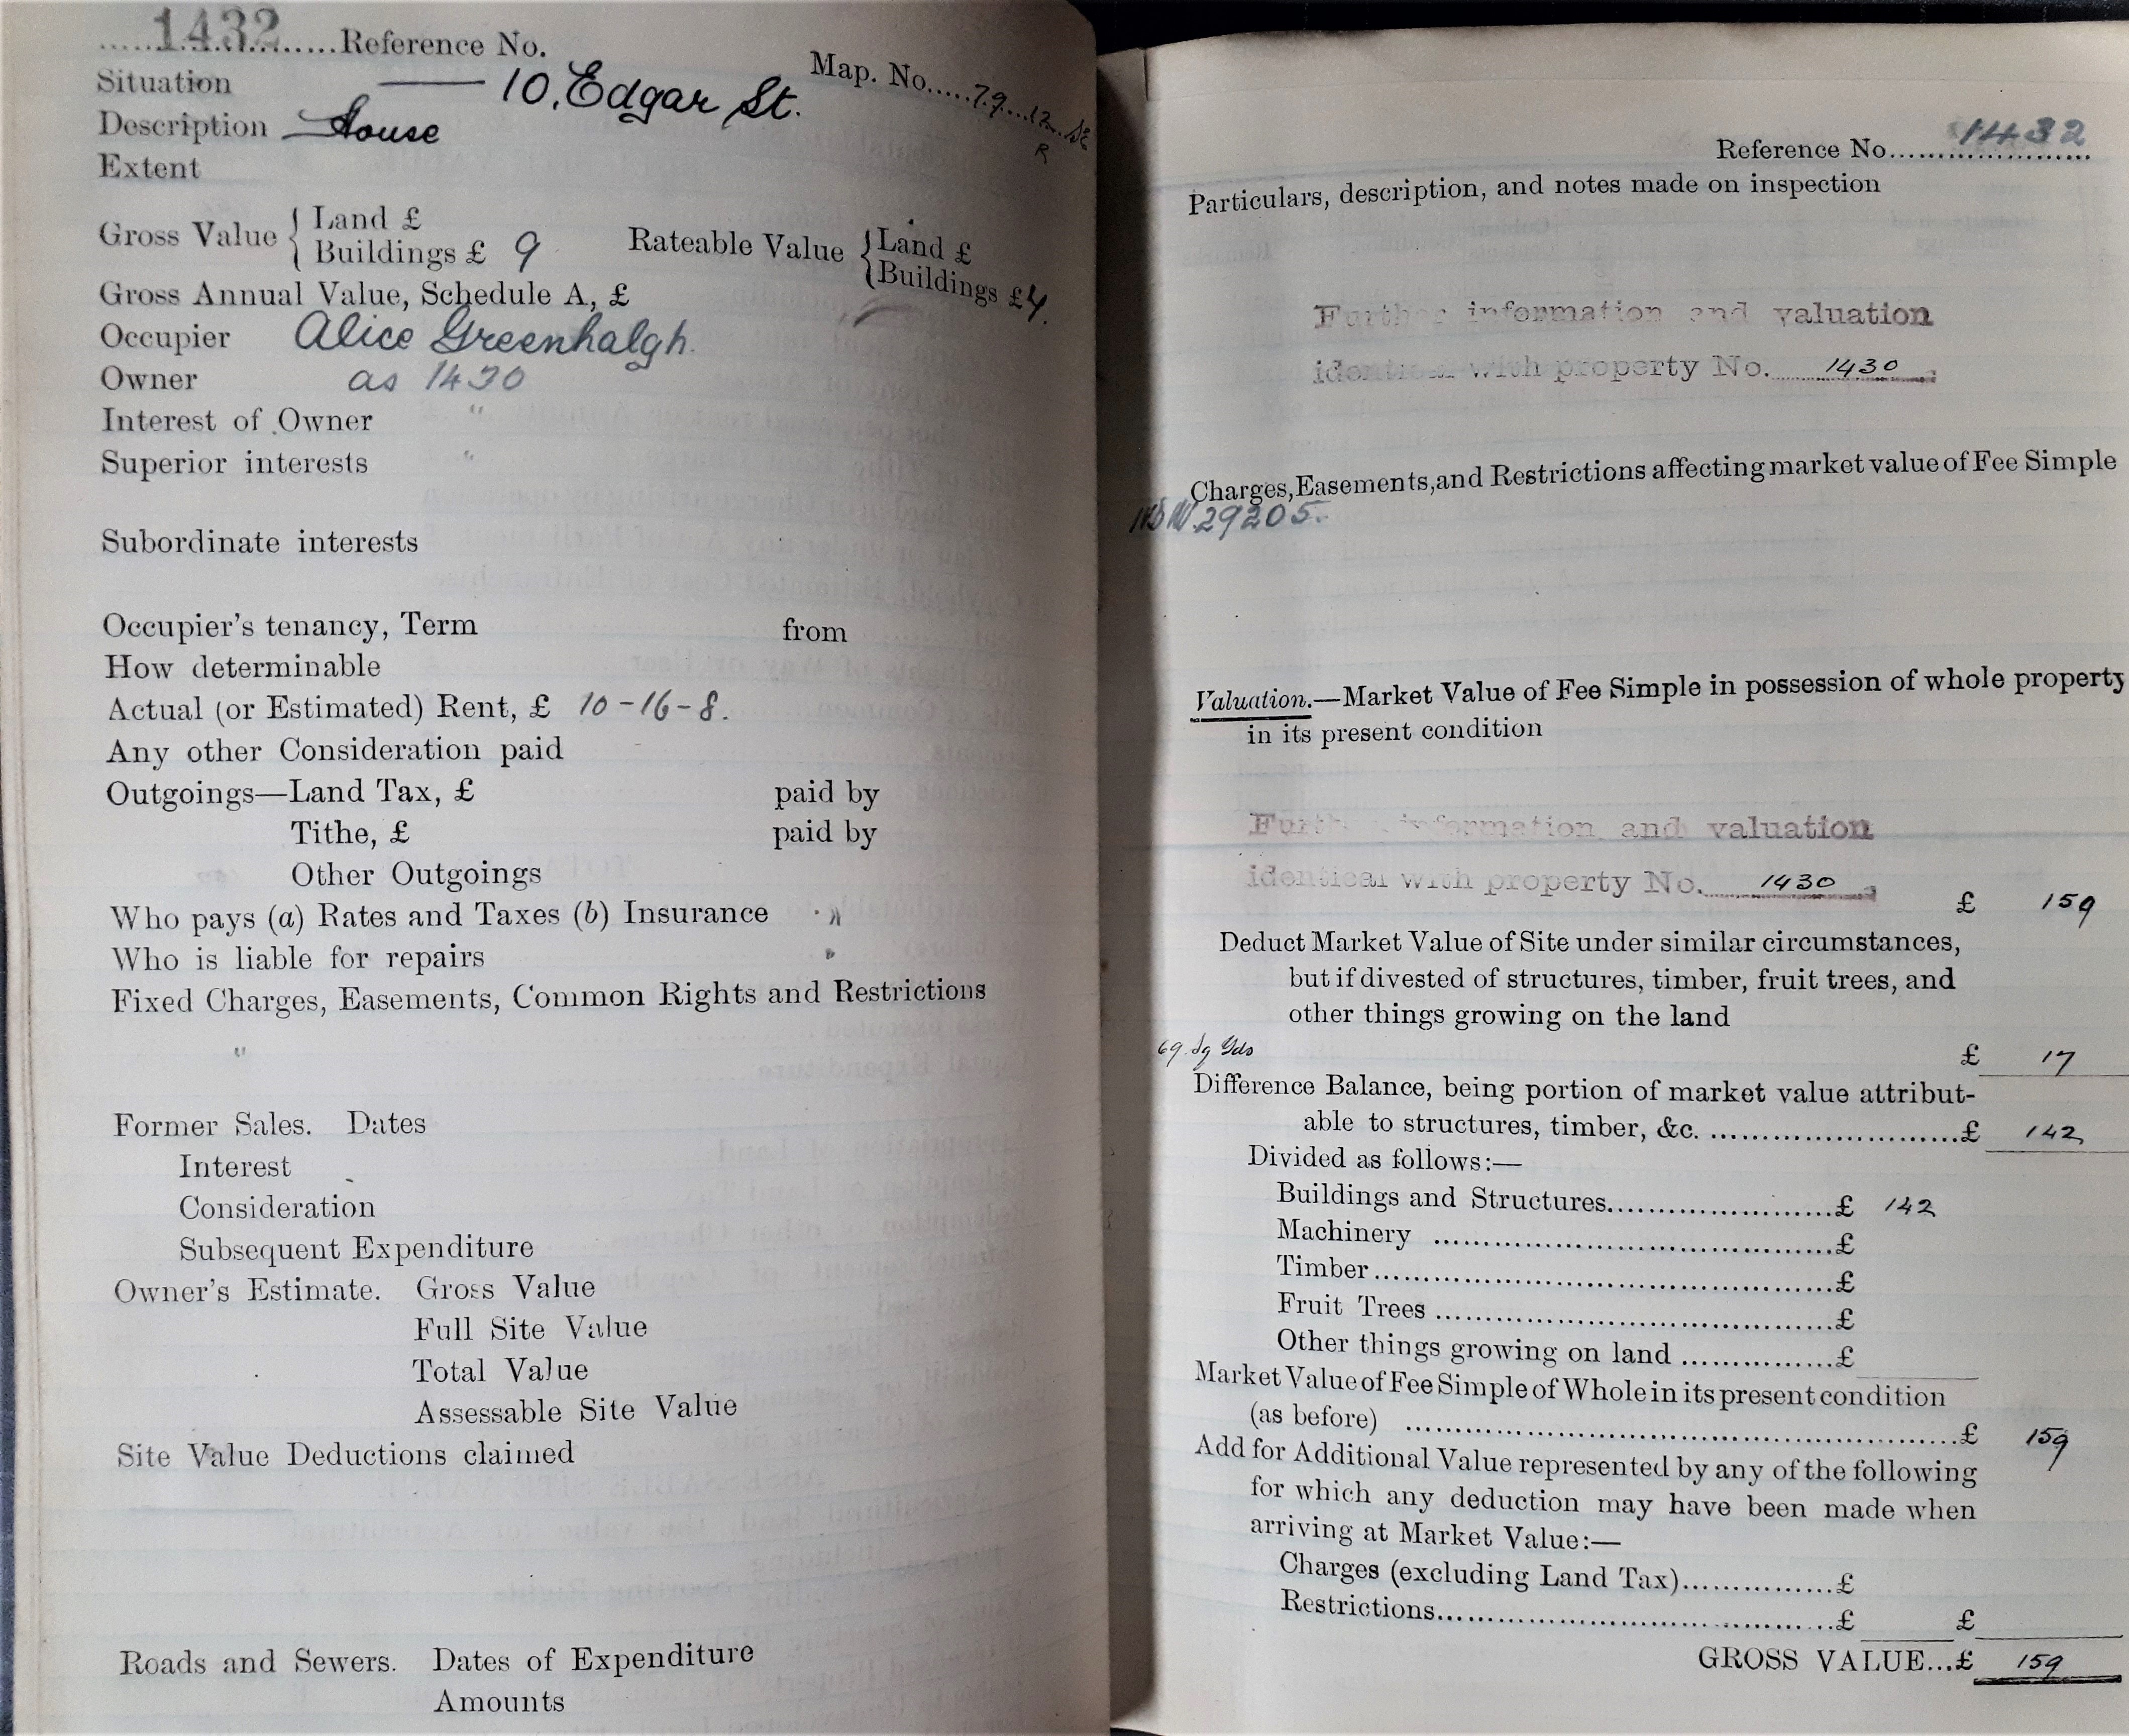 1432 Reference No.
Map. No. 79 12 SE
R
Situation — 10, Edgar St.
Description House
Extent
Gross Value { Land £
Buildings £ 9
Rateable Value { Land £
Buildings £
Gross Annual Value, Schedule A, £
Occupier Alice Greenhalgh.
Owner as 1430
Interest of Owner "
Superior interests "
Subordinate interests
Occupier's tenancy, Term from
How determinable
Actual (or Estimated) Rent, £ 10-16-8.
Any other Consideration paid
Outgoings—Land Tax, £ paid by
Tithe, £ paid by
Other Outgoings
Who pays (a) Rates and Taxes (b) Insurance "
Who is liable for repairs "
Fixed Charges, Easements, Common Rights and Restrictions
"
Former Sales. Dates
Interest
Consideration
Subsequent Expenditure
Owner's Estimate. Gross Value
Full Site Value
Total Value
Assessable Site Value
Site Value Deductions claimed
Roads and Sewers. Dates of Expenditure
Amounts
Reference No. 1432
Particulars, description, and notes made on inspection
Further information and valuation
identical with property No. 1430
Charges, Easements, and Restrictions affecting market value of Fee Simple
29205.
Valuation.—Market Value of Fee Simple in possession of whole property
in its present condition
Further information and valuation
identical with property No. 1430
£ 159
Deduct Market Value of Site under similar circumstances,
but if divested of structures, timber, fruit trees, and
other things growing on the land
69. Sq Yds £ 17
Difference Balance, being portion of market value attribut-
able to structures, timber, &c. £ 142
Divided as follows:—
Buildings and Structures £ 142
Machinery £
Timber £
Fruit Trees £
Other things growing on land £
Market Value of Fee Simple of Whole in its present condition
(as before) £ 159
Add for Additional Value represented by any of the following
for which any deduction may have been made when
arriving at Market Value:—
Charges (excluding Land Tax) £
Restrictions £ £
GROSS VALUE...£ 159